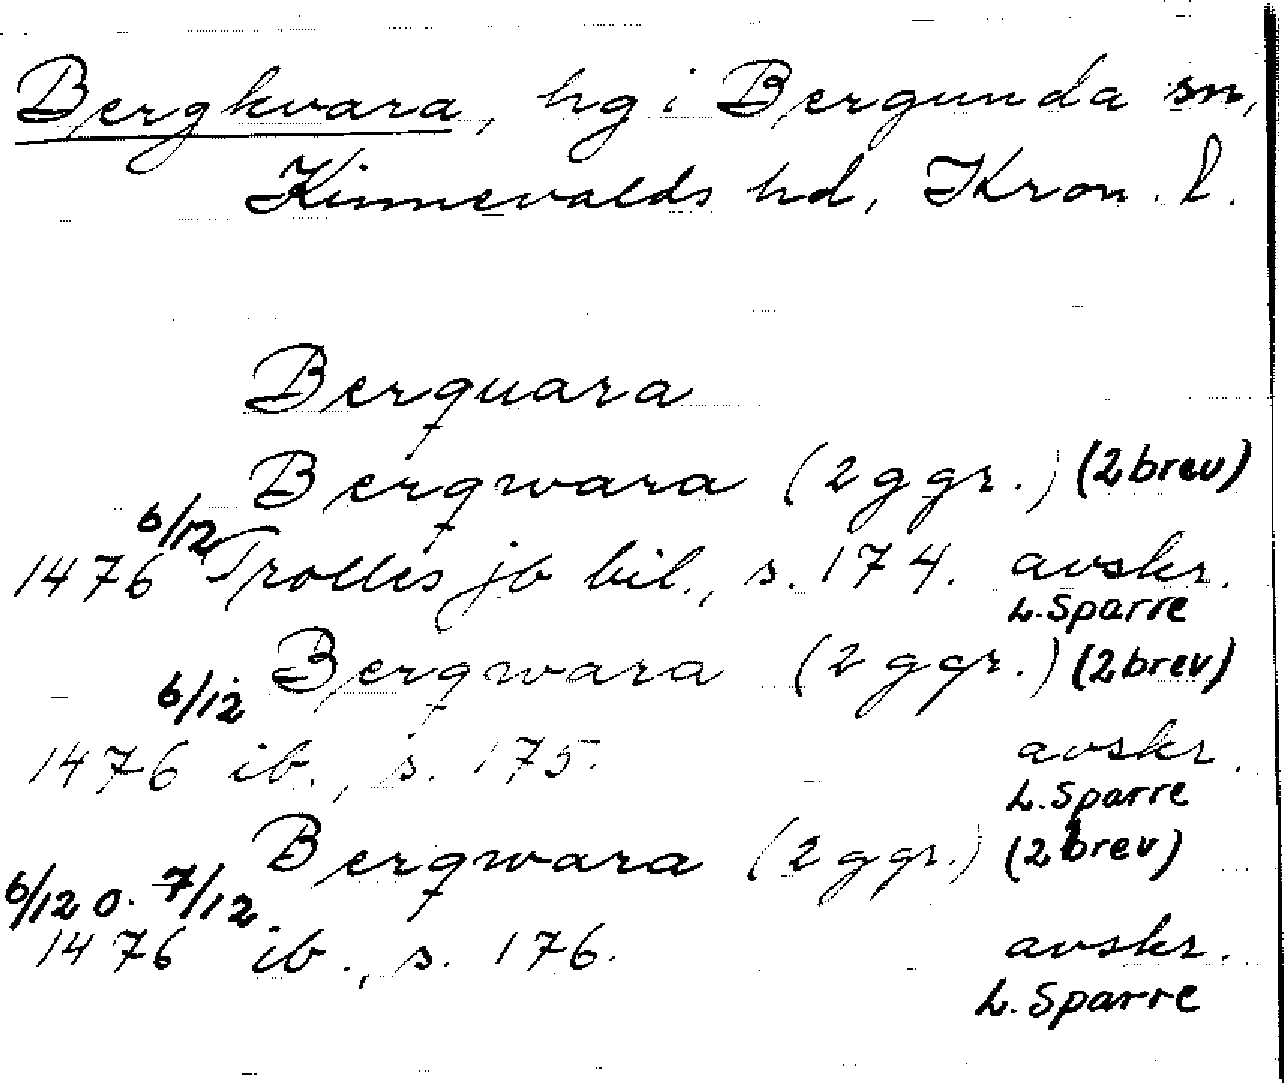 Bergkvara, hg i Bergunda sn,
Kinnevalds hd, Kron. l.
Berquara
Berqwara (2 ggr.) (2 brev)
6/12
1476 Trolles jb bil., s. 174. avskr.
L. Sparre
Berqwara (2 ggr.) (2 brev)
6/12
1476 ib., s. 175. avskr.
L. Sparre
Berqwara (2 ggr.) (2 brev)
6/12 o. 7/12
1476 ib., s. 176. avskr.
L. Sparre